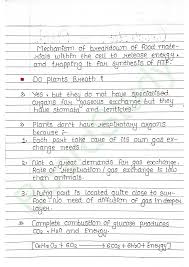 Mechanism of breakdown of food mate-
rials within the cell to release energy,
and trapping it for synthesis of ATP.
Do Plants Breath ?
Yes, but they do not have specialised
organs for gaseous exchange but they
have stomata and lenticels.
Plants don't have respiratory organs
because :-
1. Each part take care of its own gas ex-
change needs.
2. Not a great demands for gas exchange.
Role of respiration/gas exchange is low
than animals.
3. Living part is located quite close to sur-
face. No need of diffusion of gas in deeper
layer.
Complete combustion of glucose produces
CO2 + H2O and Energy.
C6H12O6 + 6O2 → 6CO2 + 6H2O + Energy